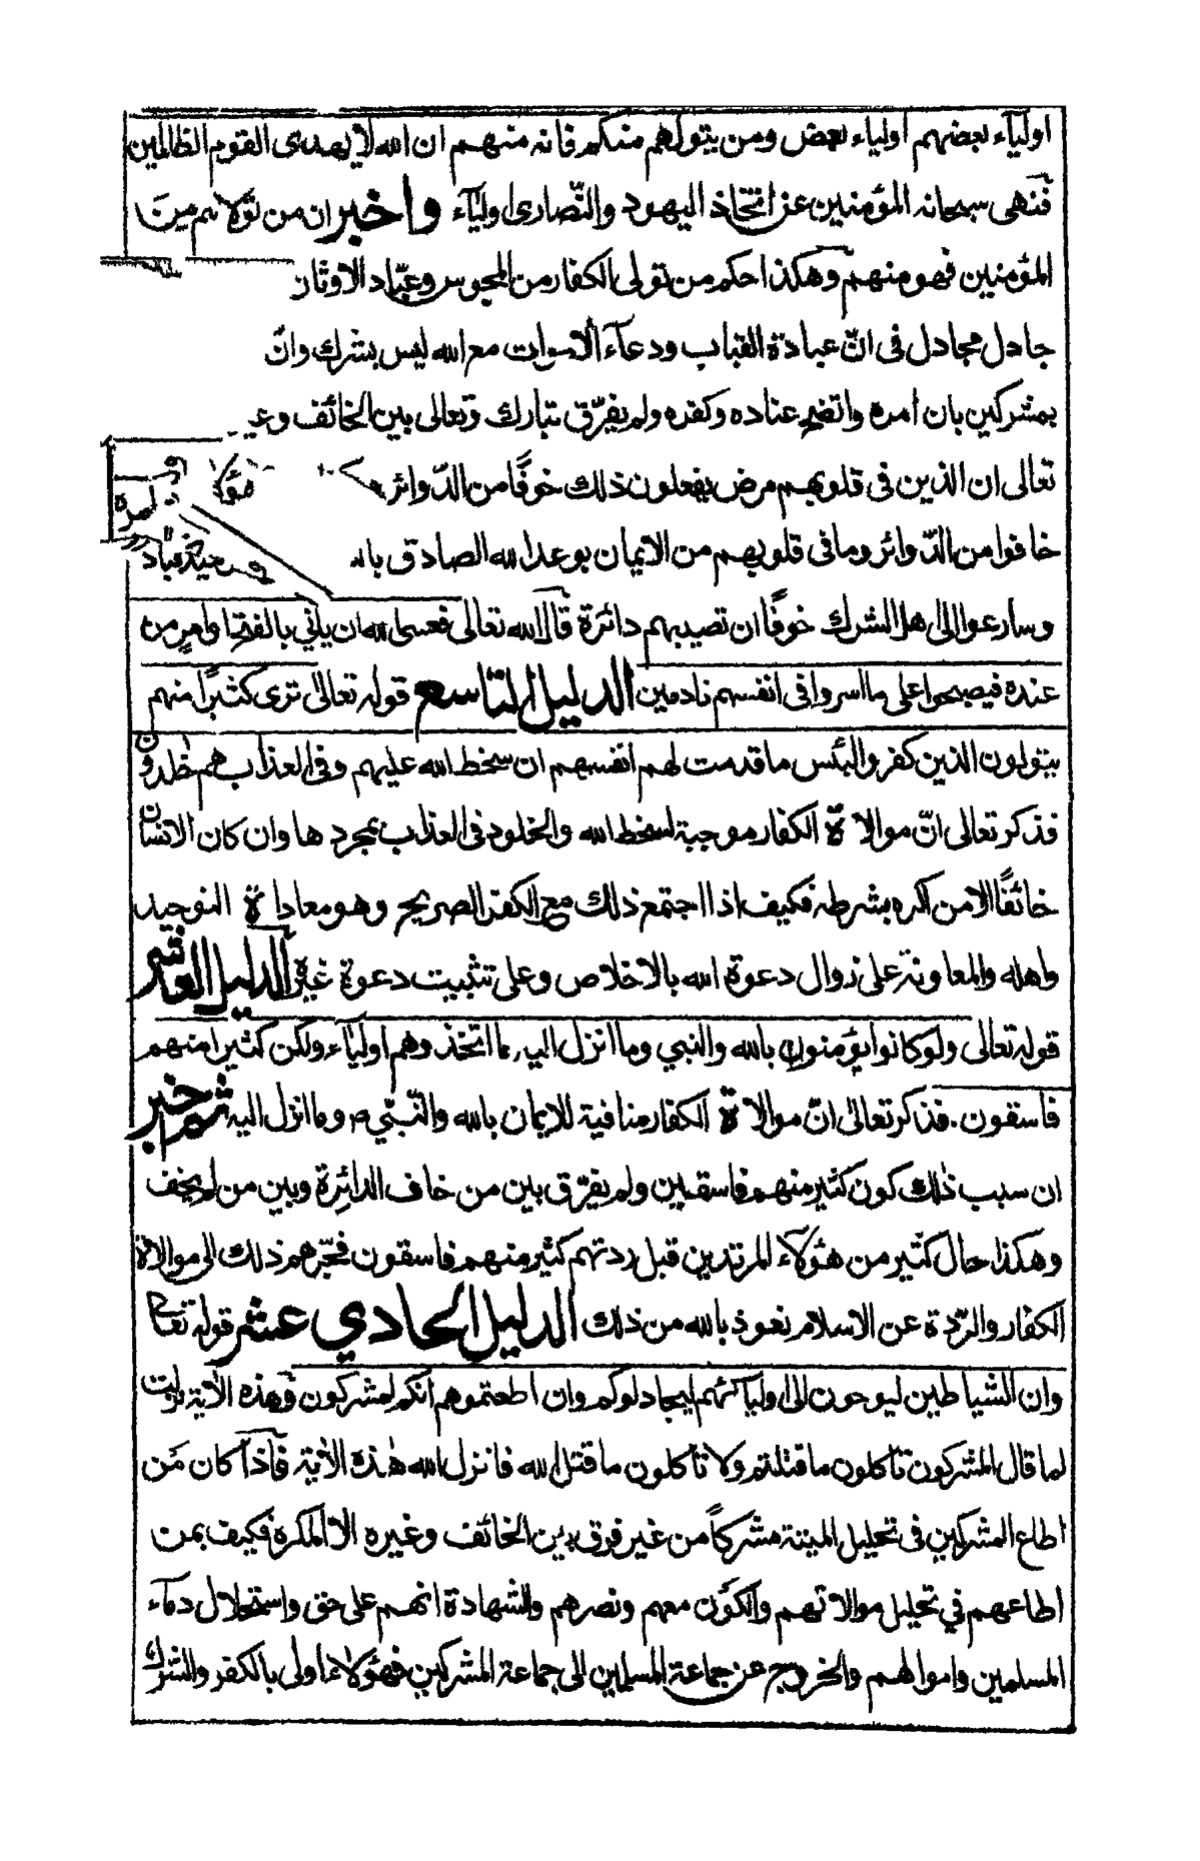 اوليآء بعضهم اولياء بعض ومن يتولهم منكم فانه منهم ان الله لا يهدى القوم الظالمين
فنهى سبحانه المؤمنين عن اتخاذ اليهود والنّصارى اوليآء واخبر ان من تولاهم مِنَ
المؤمنين فهو منهم وهكذا حكم من تولى الكفار من المجوس وعبّاد الاوثان
جادل مجادل فى انّ عبادة القباب ودعآء الاموات مع الله ليس بشرك وانّ
بمشركين بان امره واتضح عناده وكفره ولم يفرّق تبارك وتعالى بين الخائف وغير
تعالى ان الذين فى قلوبهم مرض يفعلون ذلك خوفًا من الدّوائر هؤ لمرتد
خافوا من الدّوائر وما فى قلوبهم من الايمان بوعد الله الصادق بالـ
وسارعوا الى اهل الشرك خوفًا ان تصيبهم دائرة قال الله تعالى فعسى الله ان ياتي بالفتح او امرٍ من
عنده فيصبحوا على ما اسروا فى انفسهم نادمين الدليل التاسع قوله تعالى ترى كثيرًا منهم
يتولون الذين كفروا لبئس ما قدمت لهم انفسهم ان سخط الله عليهم وفى العذاب هم خلدون
فذكر تعالى انّ موالاة الكفار موجبة لسخط الله والخلود فى العذاب بمجردها وان كان الانسان
خائفًا الا من اكره بشرطه فكيف اذا اجتمع ذلك مع الكفر الصريح وهو معاداة التوحيد
واهله والمعاونة على زوال دعوة الله بالاخلاص وعلى تثبيت دعوة غيره الدليل العاشر
قوله تعالى ولو كانوا يؤمنون بالله والنبي وما انزل اليه ما اتخذوهم اوليآء ولكن كثيرا منهم
فاسقون. فذكر تعالى انّ موالاة الكفار منافية للايمان بالله والنّبيّ ص وما انزل اليه ثم خبر
ان سبب ذلك كون كثير منهم فاسقين ولم يفرّق بين من خاف الدائِرة وبين من لم يخف
وهكذا حال كثير من هؤلآء المرتدين قبل ردتهم كثير منهم فاسقون فجرّهم ذلك الى موالاة
الكفار والرّدة عن الاسلام نعوذ بالله من ذلك الدليل الحادي عشر قوله تعالى
وان الشياطين ليوحون الى اوليآئهم ليجادلوكم وان اطعتموهم انكم لمشركون وهذه الآية نزلت
لما قال المشركون تأكلون ما قتلتم ولا تأكلون ما قتل الله فانزل الله هذه الآية فاذا كان مَن
اطاع المشركين فى تحليل الميتة مشركاً من غير فرق بين الخائف وغيره الا المكره فكيف بمن
اطاعهم في تحليل موالاتهم والكون معهم ونصرهم والشهادة انهم على حق واستحلال دمآء
المسلمين واموالهم والخروج عن جماعة المسلمين الى جماعة المشركين فهؤلاء اولى بالكفر والشرك